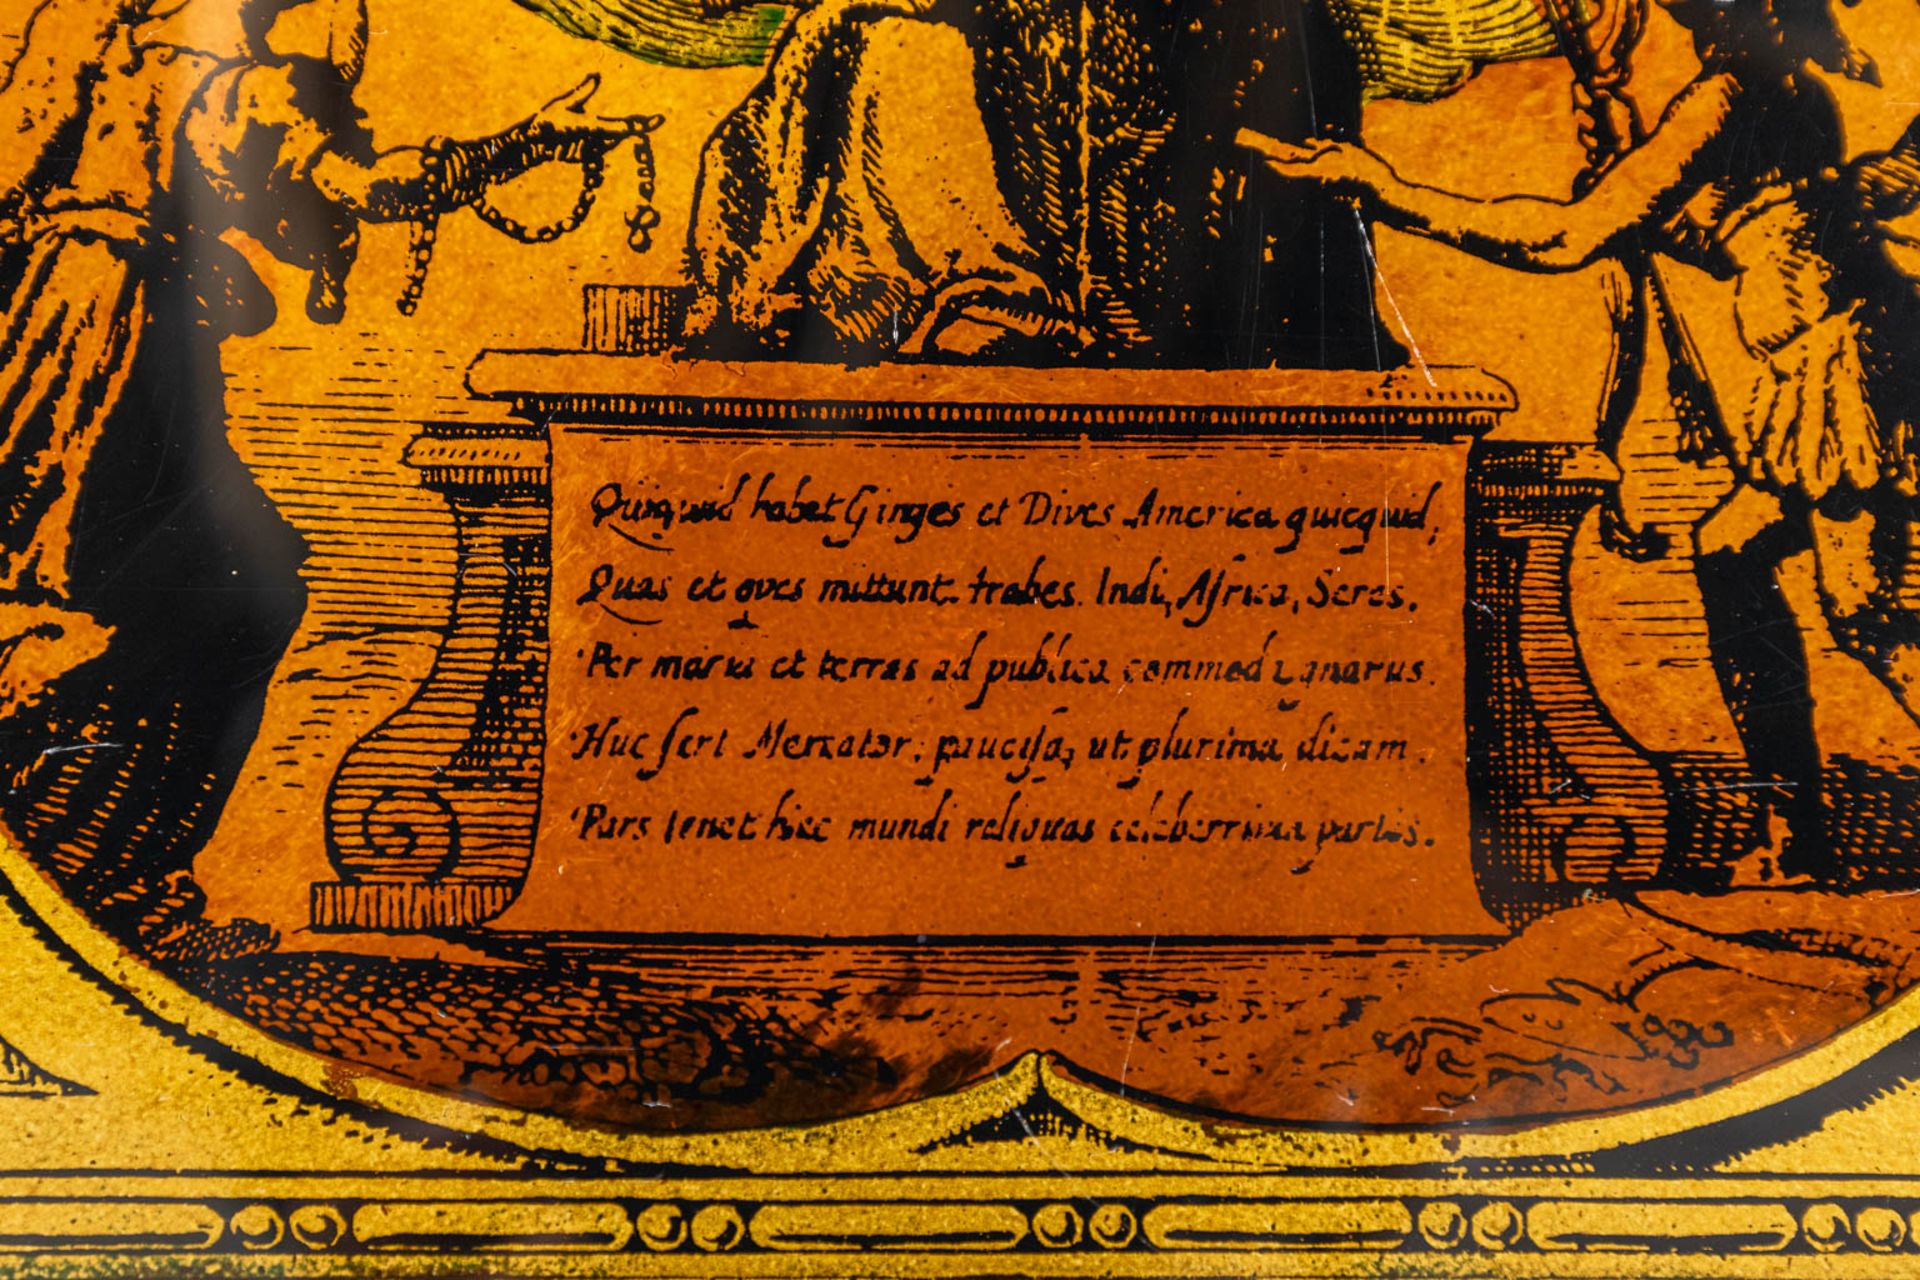 Quicquid habet Ginges et Dives America quicquid,
Quas et oves mittunt trabes. Indi, Africa, Seres.
Per maria et terras ad publica commoda gnarus.
Huc fert Mercator, paucis, ut plurima dicam.
Pars tenet haec mundi reliquas celeberrima partes.